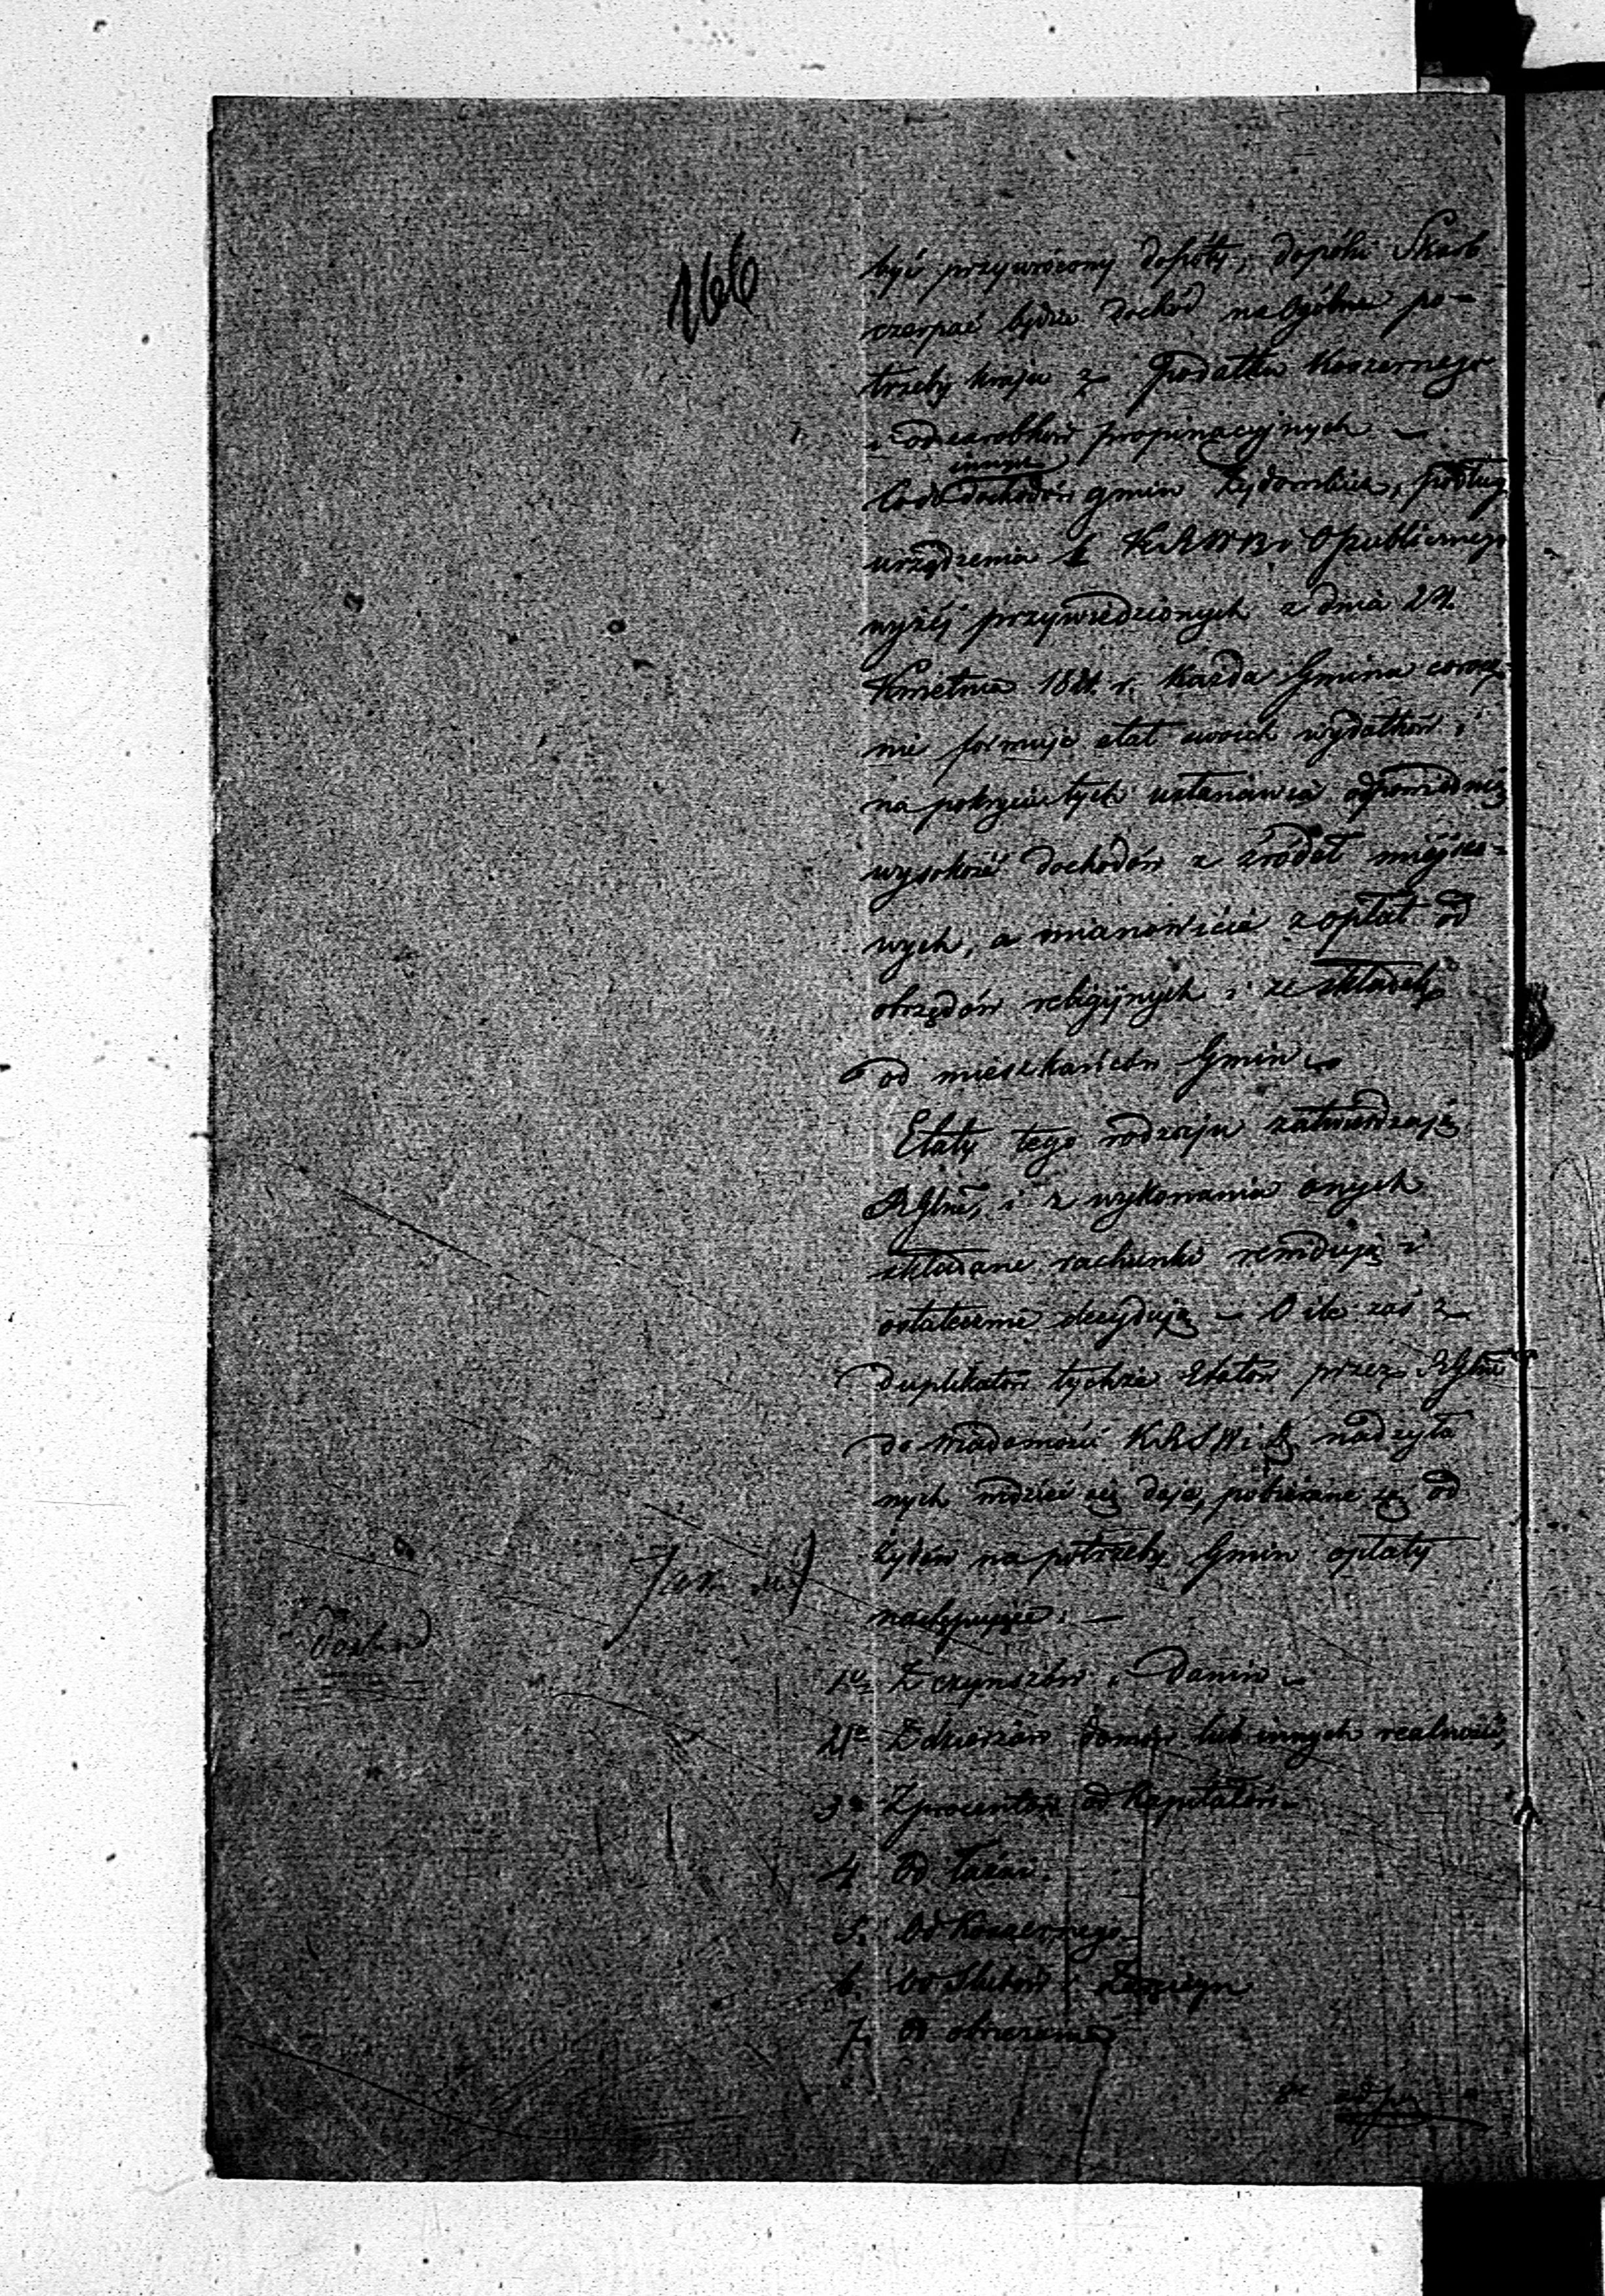 166
być przywrócony dopóty, dopóki Skarb
czerpać będzie dochód na Ogólne po-
trzeby kraju z Podatku Koszernego
i od zarobków propinacyjnych —
innych
Co do dochodów gmin Żydowskich, podług
urządzenia KRWR i Opublicznego
wyżéj przywiedzionych z dnia 24.
Kwietnia 1821. r. Każda Gmina corocz-
nie formuje etat swoich wydatków, i
na pokrycie tych ustanawia odpowiednią
wysokość dochodów z źródeł miéjsco-
wych, a mianowicie z opłat od
obrzędów religijnych i ze składek
od mieszkańców Gmin
Etaty tego rodzaju zatwierdzają
RGbne, i z wykonania onych
składane rachunki rewidują i
ostatecznie decydują — O ile zaś z
duplikatów tychże Etatów przez RGbne
do wiadomości KRSW i nadsyła
nych widzieć się daje, pobierane są od
Żydów na potrzeby Gmin opłaty
następujące: —
1o Z czynszów i Danin
2o Z dzierżaw domów lub innych realności,
3o Z procentów od Kapitałów
4. Od łaźni.
5. Od Koszernego
6. Od Ślubów i Zaręczyn
7. Od obrzezania
8o